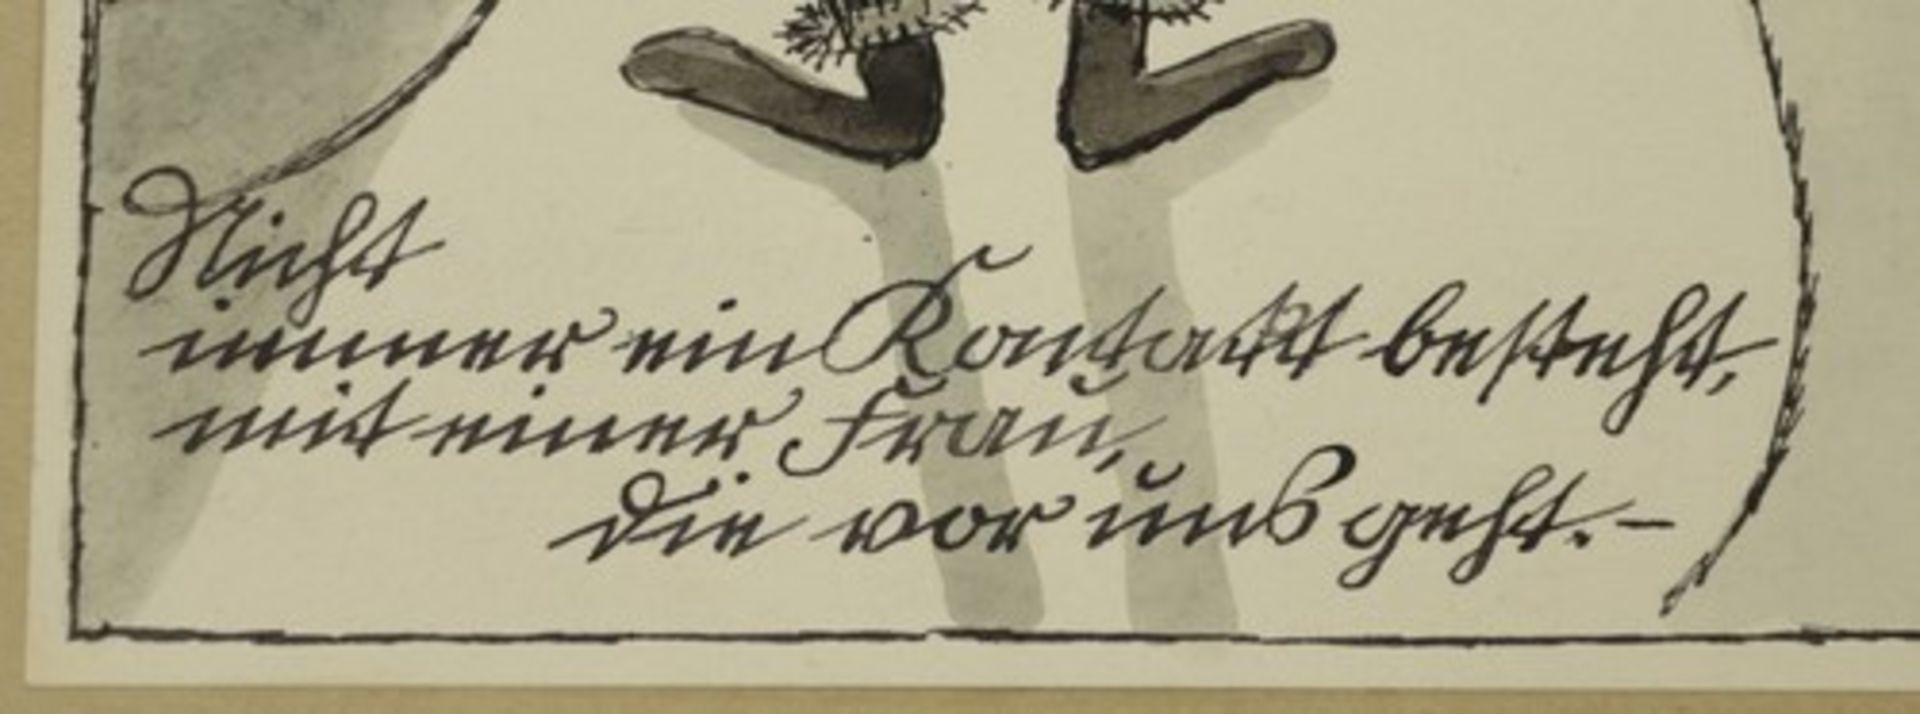 Nicht
immer ein Kontakt besteht,
mit einer Frau,
die vor uns geht.-